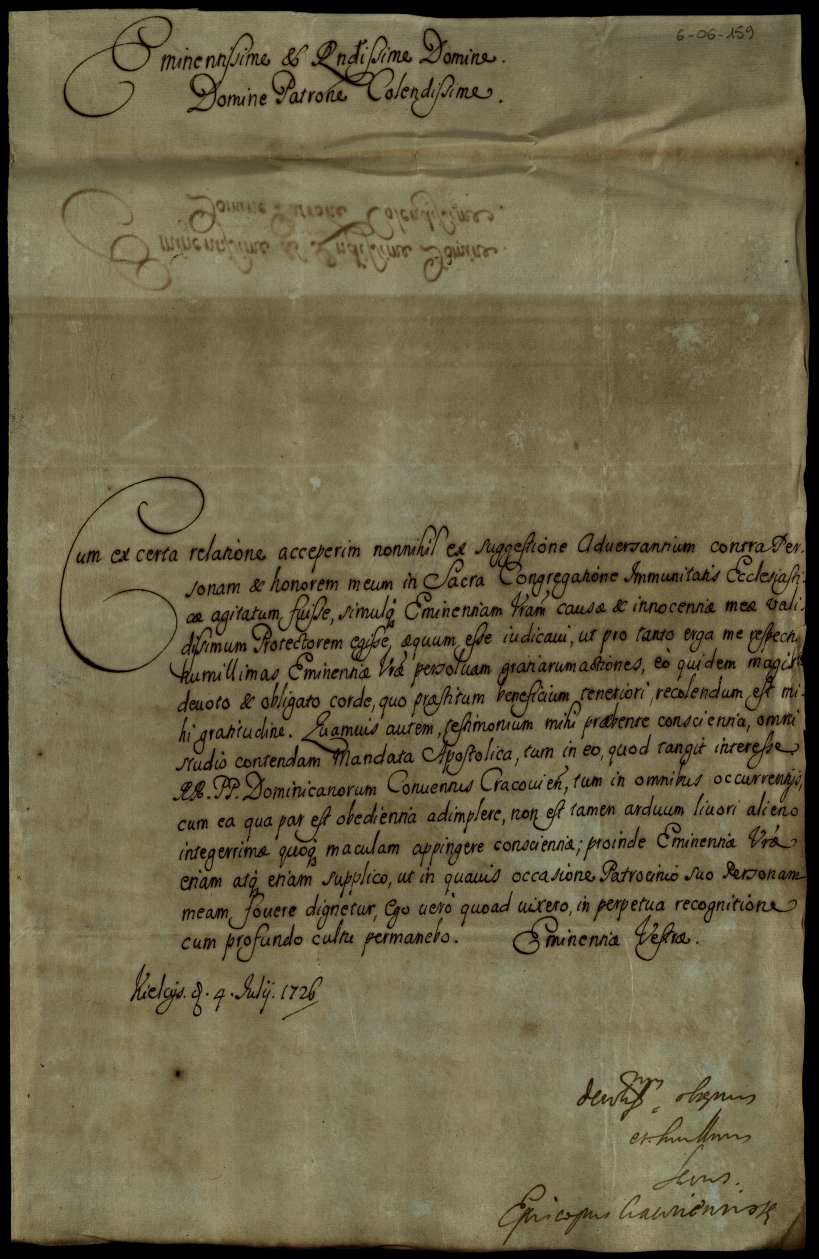 6-06-159
Eminentissime & Rndissime Domine.
Domine Patrone Colendissime.
Cum ex certa relatione acceperim nonnihil ex suggestione Adversantium contra Per-
sonam & honorem meum in Sacra Congregatione Immunitatis Ecclesiasti-
cæ agitatum fuisse, simulq Eminentiam Vram causæ & innocentiæ meæ vali-
dissimum Protectorem egisse, æquum esse iudicaui, ut pro tanto erga me respectu
humillimas Eminentiæ Vræ persoluam gratiarumactiones, eò quidem magis
deuoto & obligato corde, quo præstitum beneficium teneriori, recolendum est mi-
hi gratitudine. Quamuis autem, testimonium mihi præbente conscientia, omni
studio contendam Mandata Apostolica, tum in eo, quod tangit interesse
RR. PP. Dominicanorum Conuentus Cracouień, tum in omnibus occurrentijs,
cum ea qua par est obedientia adimplere, non est tamen arduum liuori alieno
integerrimæ quoq maculam appingere conscientiæ; proinde Eminentiæ Vræ
etiam atq etiam supplico, ut in quauis occasione Patrocinio suo Personam
meam fouere dignetur, Ego uerò quoad uixero, in perpetua recognitione
cum profundo cultu permanebo. Eminentiæ Vestræ.
Kielcijs. d. 4. Julij. 1726
obsqmus
et humillimus
Seruus.
Episcopus Cracouiensis